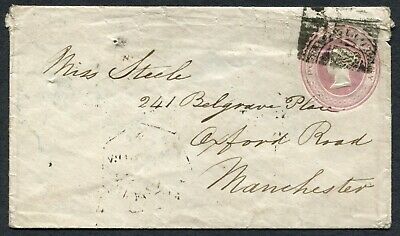 Miss Steele
241 Belgrave Place
Oxford Road
Manchester